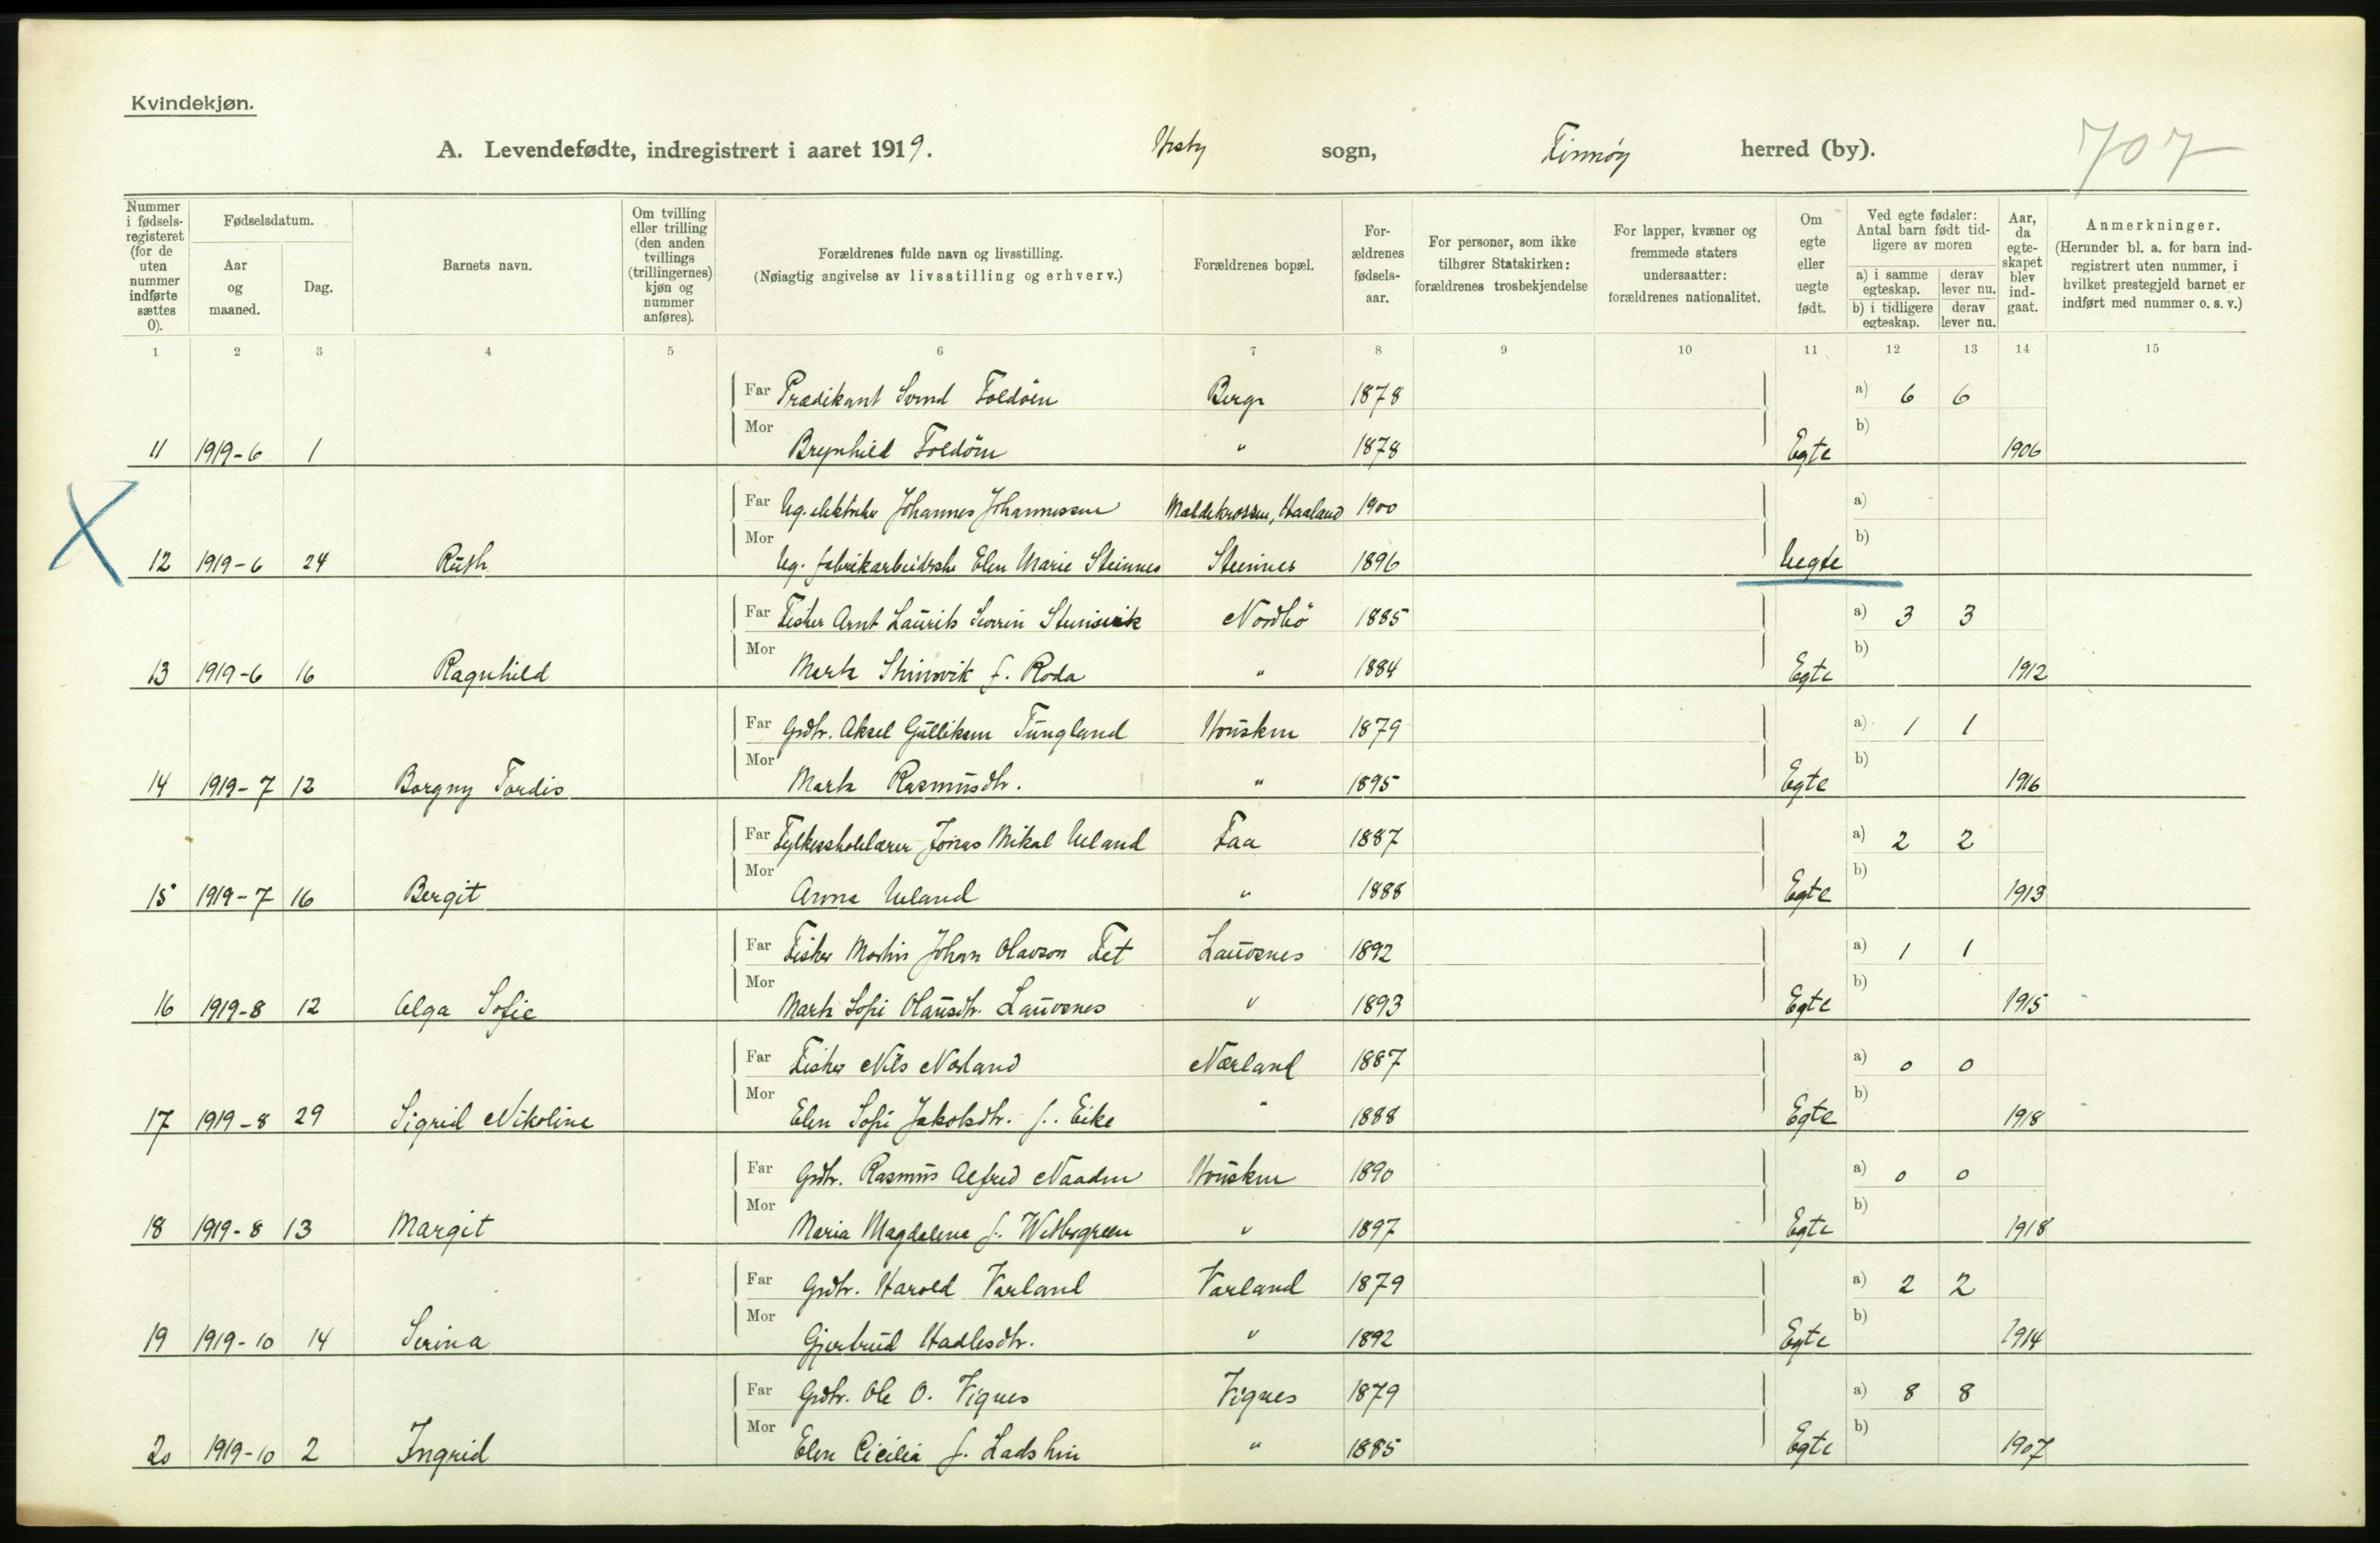 Kvindekjøn.
A. Levendefødte, indregistrert i aaret 1919. Hesby sogn, Finnøy herred (by). 707
Nummer i fødsels-registeret (for de uten nummer indførte sættes 0).
Fødselsdatum.
Aar og maaned.
Dag.
Barnets navn.
Om tvilling eller trilling (den anden tvillings (trillingernes) kjøn og nummer anføres).
Forældrenes fulde navn og livsstilling.
(Nøiagtig angivelse av livsstilling og erhverv.)
Forældrenes bopæl.
For-ældrenes fødsels-aar.
For personer, som ikke tilhører Statskirken: forældrenes trosbekjendelse
For lapper, kvæner og fremmede staters undersaatter: forældrenes nationalitet.
Om egte eller uegte født.
Ved egte fødsler: Antal barn født tid-ligere av moren
a) i samme egteskap. derav lever nu.
b) i tidligere egteskap. derav lever nu.
Aar, da egte-skapet blev ind-gaat.
Anmerkninger.
(Herunder bl. a. for barn ind-registrert uten nummer, i hvilket prestegjeld barnet er indført med nummer o. s. v.)
1 2 3 4 5 6 7 8 9 10 11 12 13 14 15
Far Prædikant Svend Foldöen Berge 1878 a) 6 6
Mor b)
11 1919-6 1 Brynhild Foldöen " 1878 Egte 1906
Far Ug. elektriker Johannes Johannessen Maldekrossen, Haaland 1900 a)
Mor b)
12 1919-6 24 Ruth Ug. fabrikarbeiderske Elen Marie Steinnes Steinnes 1896 Uegte
Far Fisker Arnt Laurits Severin Stensvik Nordbö 1885 a) 3 3
Mor b)
13 1919-6 16 Ragnhild Marta Stensvik f. Roda " 1884 Egte 1912
Far Grdbr. Aksel Gulliksen Tungland Housken 1879 a) 1 1
Mor b)
14 1919-7 12 Borgny Tordis Marta Rasmusdtr. " 1895 Egte 1916
Far Fylkesskolelærer Jonas Mikal Ueland Faa 1887 a) 2 2
Mor b)
15 1919-7 16 Bergit Anna Ueland " 1888 Egte 1913
Far Fisker Martin Johan Olavson Fet Lauvsnes 1892 a) 1 1
Mor b)
16 1919-8 12 Olga Sofie Marta Sofie Olausdtr. Lauvsnes " 1893 Egte 1915
Far Fisker Nils Nærland Nærland 1887 a) 0 0
Mor b)
17 1919-8 29 Sigrid Nikoline Elen Sofie Jakobsdtr. f. Eike " 1888 Egte 1918
Far Grdbr. Rasmus Alfred Naaden Housken 1890 a) 0 0
Mor b)
18 1919-8 13 Margit Maria Magdalena f. Wetergreen " 1897 Egte 1918
Far Grdbr. Harold Varland Varland 1879 a) 2 2
Mor b)
19 1919-10 14 Serina Gjertrud Hadlesdtr. " 1892 Egte 1914
Far Grdbr. Ole O. Vignes Vignes 1879 a) 8 8
Mor b)
20 1919-10 2 Ingrid Elen Cicilia f. Ladstein " 1885 Egte 1907